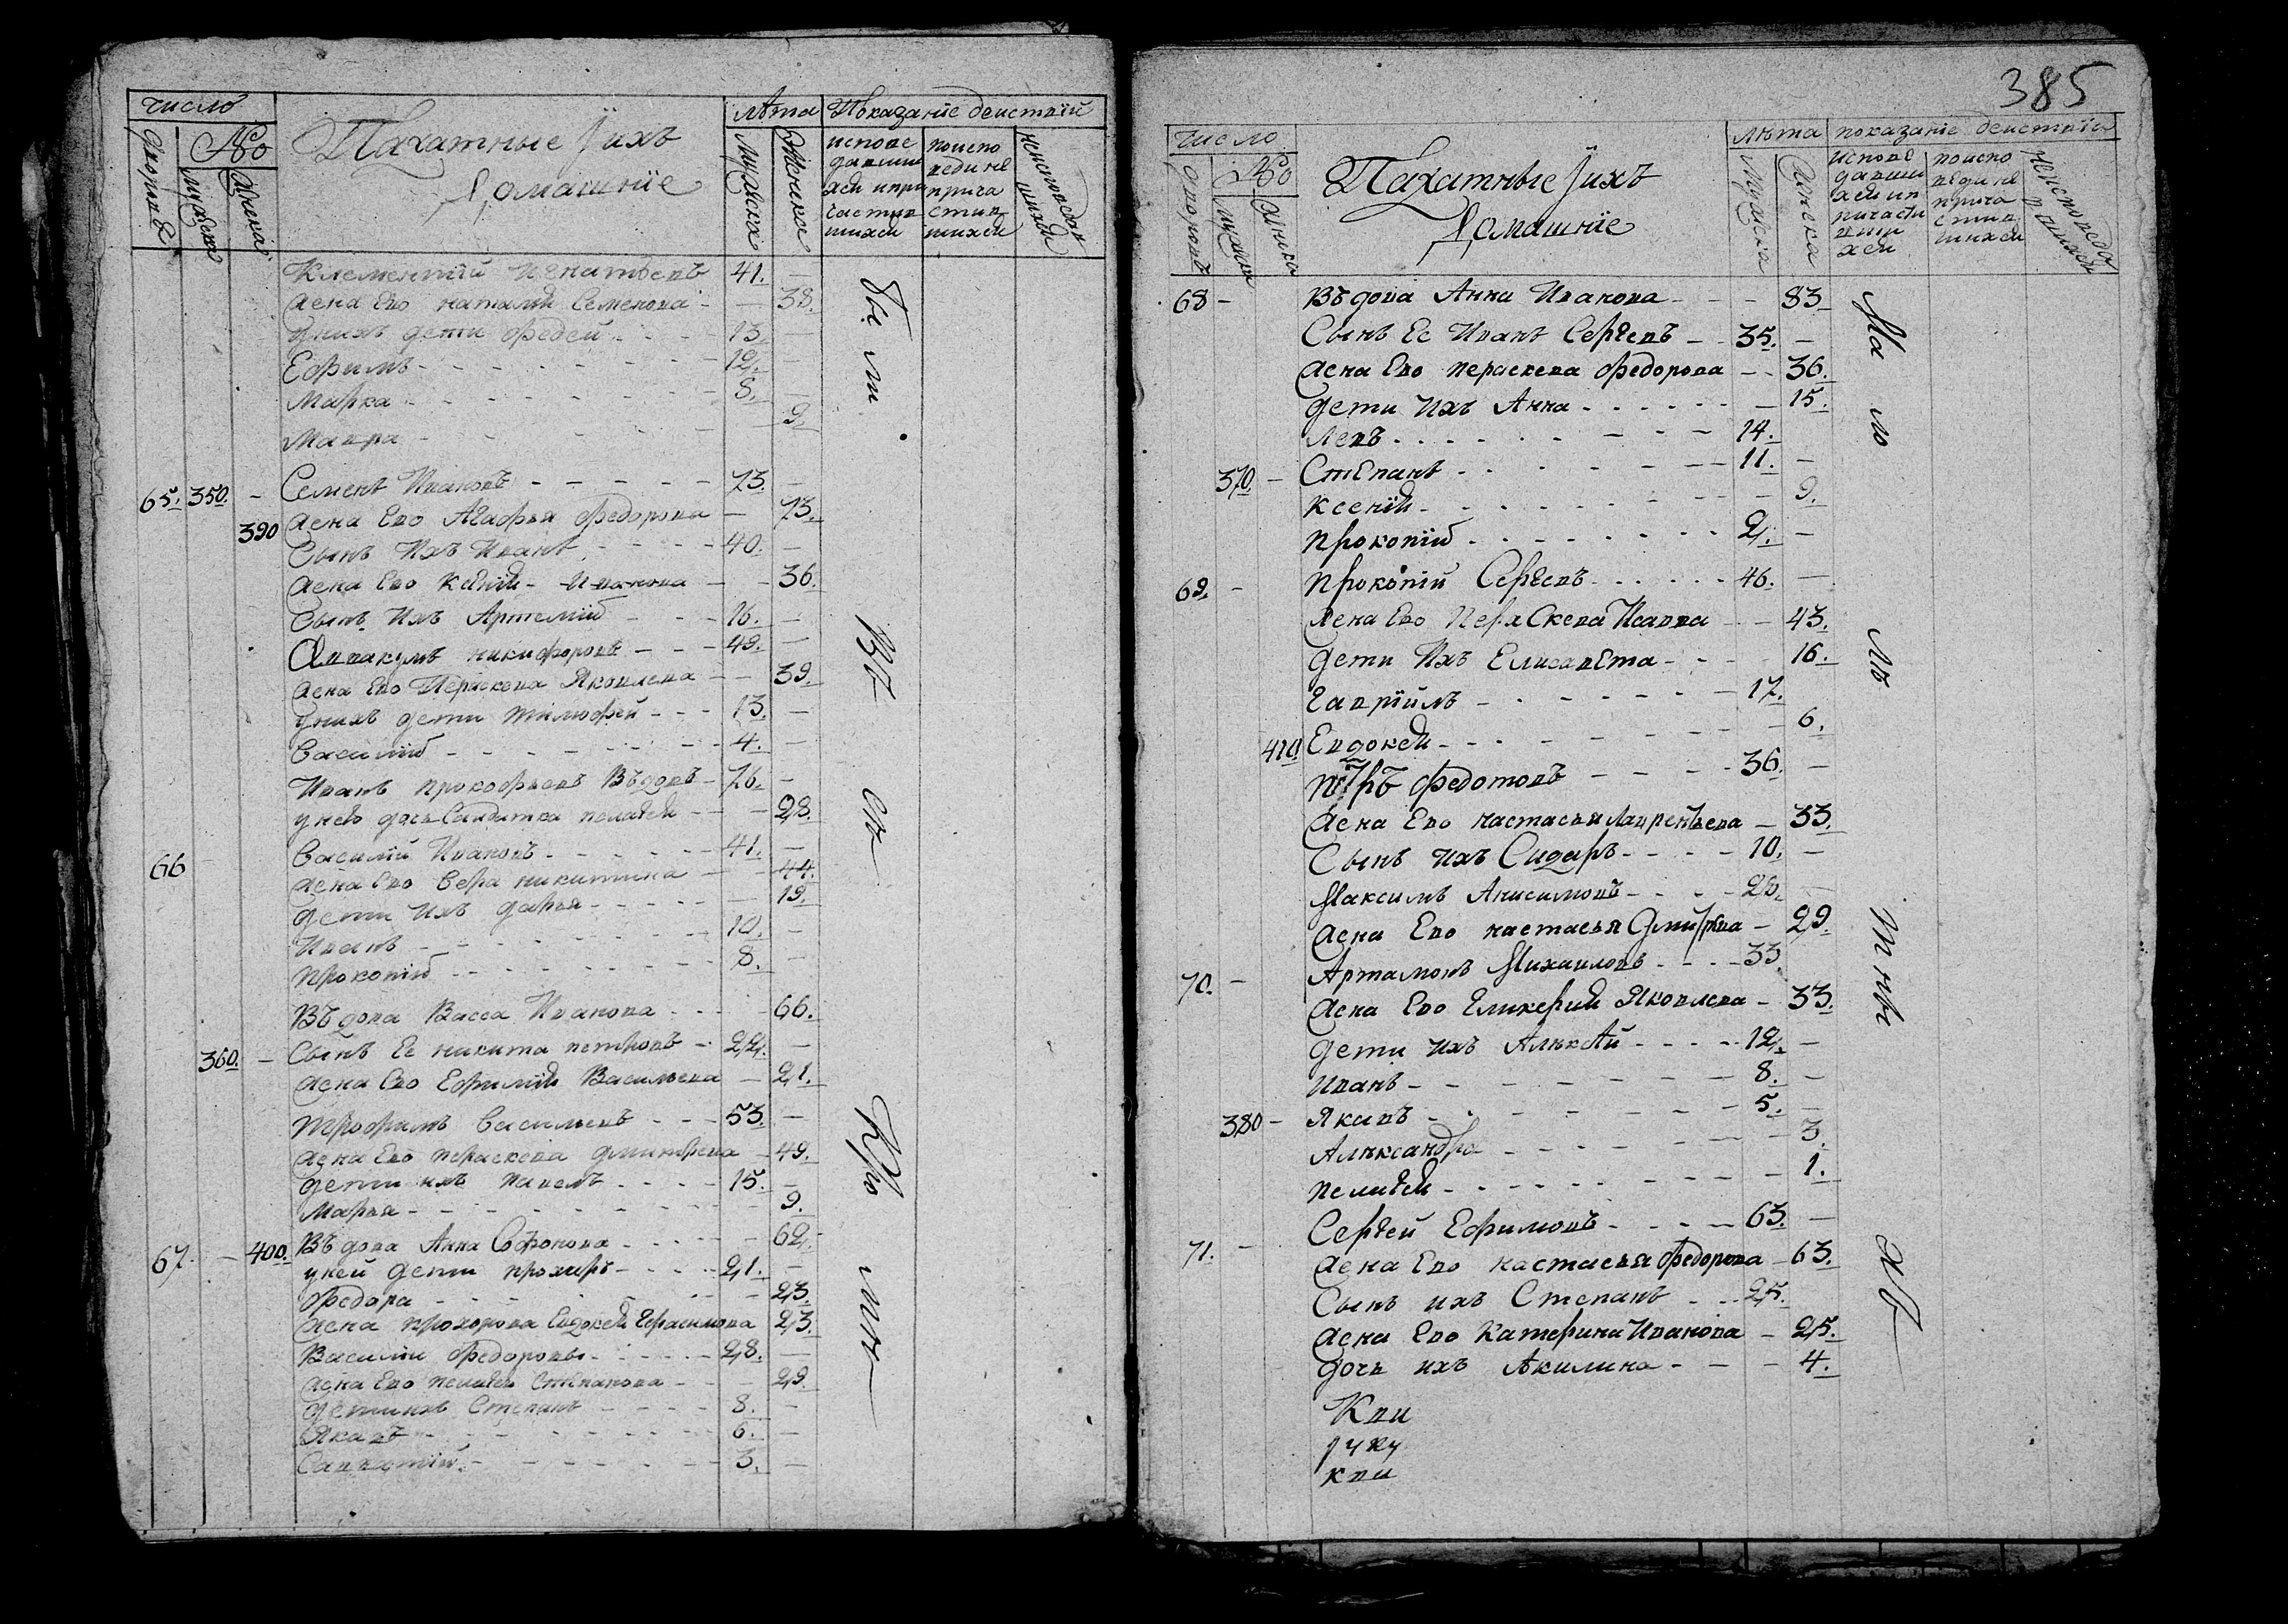 число
№
дворовъ
мужска
женска
Пахатные Їихъ
Домашнїе
лѣта
Показанїе деиствїй
мужска
женска
испове
давши
хси и при
частив
шихси
поиспо
веди не
прича
стив
шихси
неисповедав
шихси
Клементїй Игнатьевъ 41.
жена Ево наталия Семенова 38.
у нихъ дети Федей 13.
Ефимъ 12.
Марка 8.
Мавра 9.
65. 350. Семенъ Ивановъ 73.
390 жена Ево Агафья Федорова 73.
Сынъ Ихъ Иванъ 40.
жена Ево Ксения Иванова 36.
Сынъ Ихъ Артемїй 16.
Аввакумъ никифоровъ 49.
жена Ево Пераскева Яковлева 39.
у нихъ дети тимофей 13.
Василїй 4.
Иванъ прокофьевъ Въдовъ 76.
у нево дочь Салдатка пелагея 28.
66 Василїй Ивановъ 41.
жена Ево Вера никитина 44.
дети Ихъ дарья 19.
Иванъ 10.
Прокопїй 8.
Въдова Васса Иванова 66.
360. Сынъ Ее никита петровъ 22.
жена Ево Ефимия Васильева 21.
трофимъ Васильевъ 53.
жена Ево пераскева дмитрева 49.
дети ихъ павелъ 15.
Марья 9.
67. 400. Въдова Анна Софонова 62.
у ней дети прохиръ 21.
Федора 23.
жена прохорова Евдокея Герасимова 23.
Василїи Федоровы 28.
жена Ево пелагея Степанова 29.
дети ихъ Степанъ 8.
Якавъ 6.
Савватїй 3.
Бы ли
Въ
св
Кро
мъ
385
число
№
дворовъ
мужска
женска
Пахатные Їихъ
Домашнїе
лѣта
показанїе деиствїи
мужска
женска
испове
давши
хси ип
ричасти
вши
хси
поиспо
веди не
прича
стив
шихси
68 Въдова Анна Иванова 83
Сынъ Ее Иванъ Сергѣевъ 35.
жена Ево пераскева Федорова 36.
дети Ихъ Анна 15.
Левъ 14.
370. Степанъ 11.
ксенїя 9.
прокопїй 2.
69. прокопїй Сергѣевъ 46.
жена Ево Пераскева Исаева 43.
дети Ихъ Елисавета 16.
гаврїилъ 17.
410. Евдокея 6.
петръ Федотовъ 36.
жена Ево настасья Лаврентьева 33.
Сынъ ихъ Сидаръ 10.
Максимъ Анисимовъ 26.
жена Ево настасья Дмитрева 29.
70. Артамонъ Михаиловъ 33
жена Ево Гликерия Яковлева 33.
дети ихъ Алѣксѣй 12.
Иванъ 8.
380 Якавъ 5.
Алѣксандра 3.
пелагея 1.
71. Сергей Ефимовъ 63.
жена Ево настасья Федорова 63.
Сынъ ихъ Степанъ 25.
жена Ево Катерина Иванова 25.
дочь ихъ Акилина 4.
Ма
ло
лѣ
тны
хъ